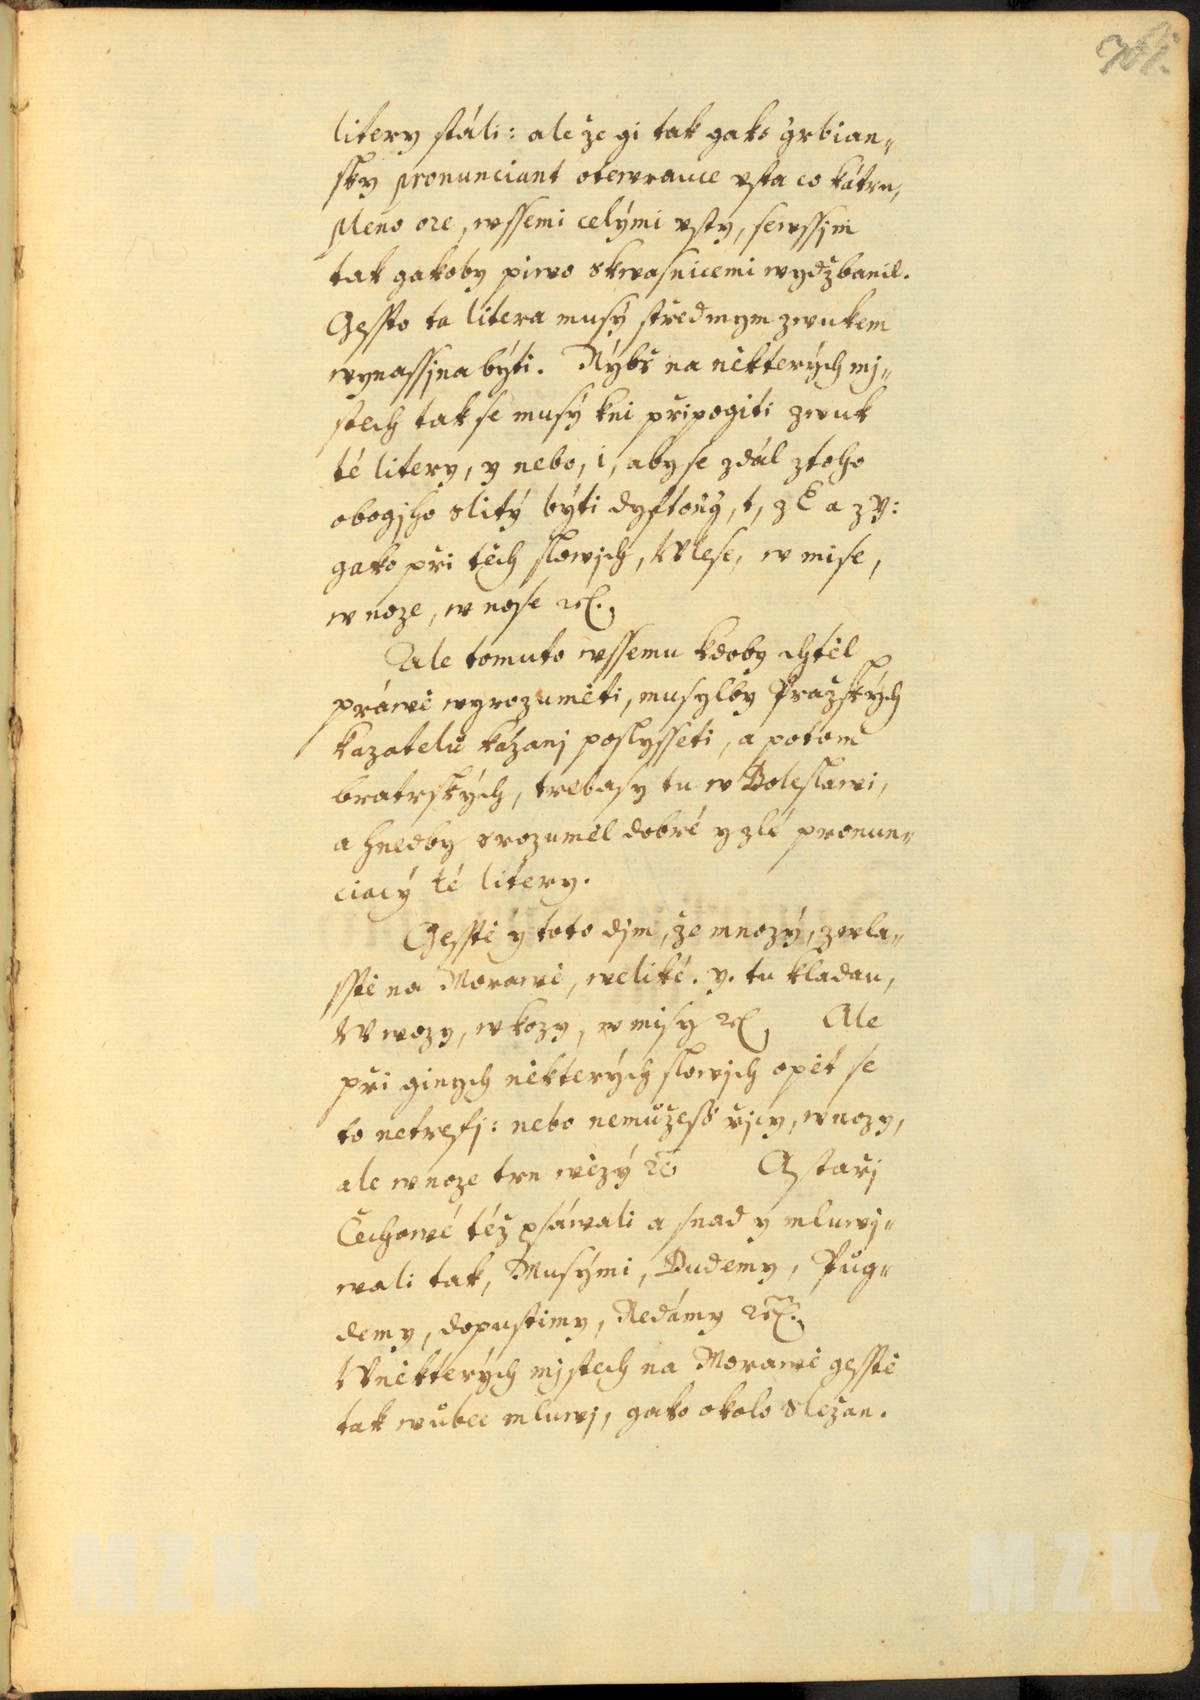 litery stáli: ale že gi tak gako grbian„
sky pronunciant otewrauce vsta co kátru,
pleno ore, wssemi celými vsty, sewssjm
tak gakoby piwo skwasnicemi wydžbanil.
Gessto ta litera musý středmym zwukem
wynassjna býti. Nýbř na některých mj„
stech tak se musý kni připogiti zwuk
té litery, y nebo, i, aby se zdál ztoho
obogjho slitý býti dyftong, t, z E a z y:
gako při těch slowjch, W lese, w mise,
w noze, w nose ꝛc.
Ale tomuto wssemu kdoby chtěl
práwě wyrozuměti, musylby Pražských
kazatelů kázanj poslysseti, a potom
bratrských, trebasy tu w Boleslawi,
a hnedby srozuměl dobré y zlé pronun„
ciacý té litery.
Gesstě y toto djm, že mnozý, zwla„
sstě na Morawě, weliké. y. tu kladau,
W wozy, w kozy, w misy ꝛc Ale
při ginych některých slowjch opět se
to netrefj: nebo nemůžess řjcy, w nozy,
ale w noze trn wězý ꝛc A staří
Čechowé též psáwali a snad y mluwj„
wali tak, Musými, Budemy, Půg„
demy, dopustimy, Nedámy ꝛc.
W některých mjstech na Morawě gesstě
tak wůbec mluwj, gako okolo Sležan.
MZK
MZK